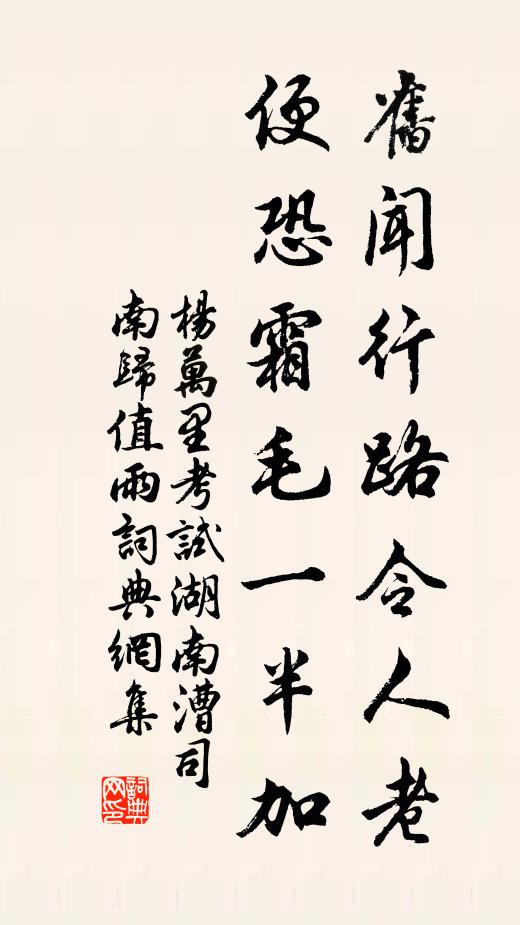 舊聞行路令人老
便恐霜毛一半加
楊萬里考試湖南漕司
南歸值雨詞典網集
詞典
网印